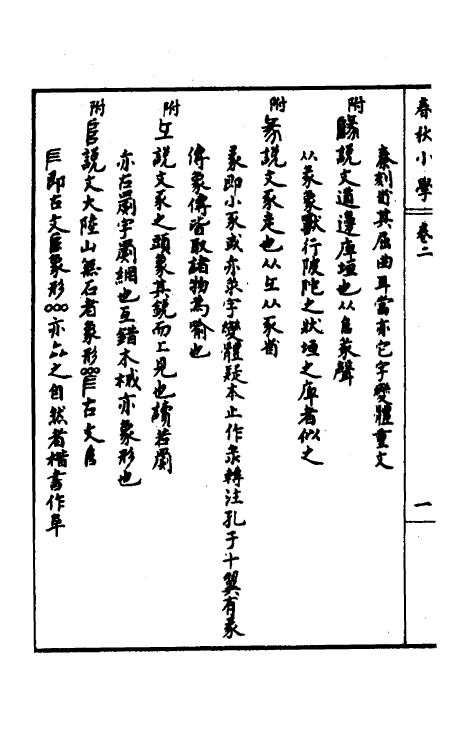 春秋小學 卷二
一
秦刻哲其屈曲耳當亦它字變體重文
附 隊說文道邊庳垣也从𨸏彖聲
从彖象獸行陂陀之狀垣之庳者似之
附 彖說文豕走也从彑从豕省
彖即小豕或亦㣇字變體疑本止作彖轉注孔子十翼有彖
傳象傳皆取諸物為喻也
附 彑說文豕之頭象其銳而上見也讀若罽
亦古罽字罽網也互錯木械亦象形也
附 𨸏說文大陸山無石者象形𠼛古文𨸏
即古文𨸏象形亦晶之自然者楷書作阜